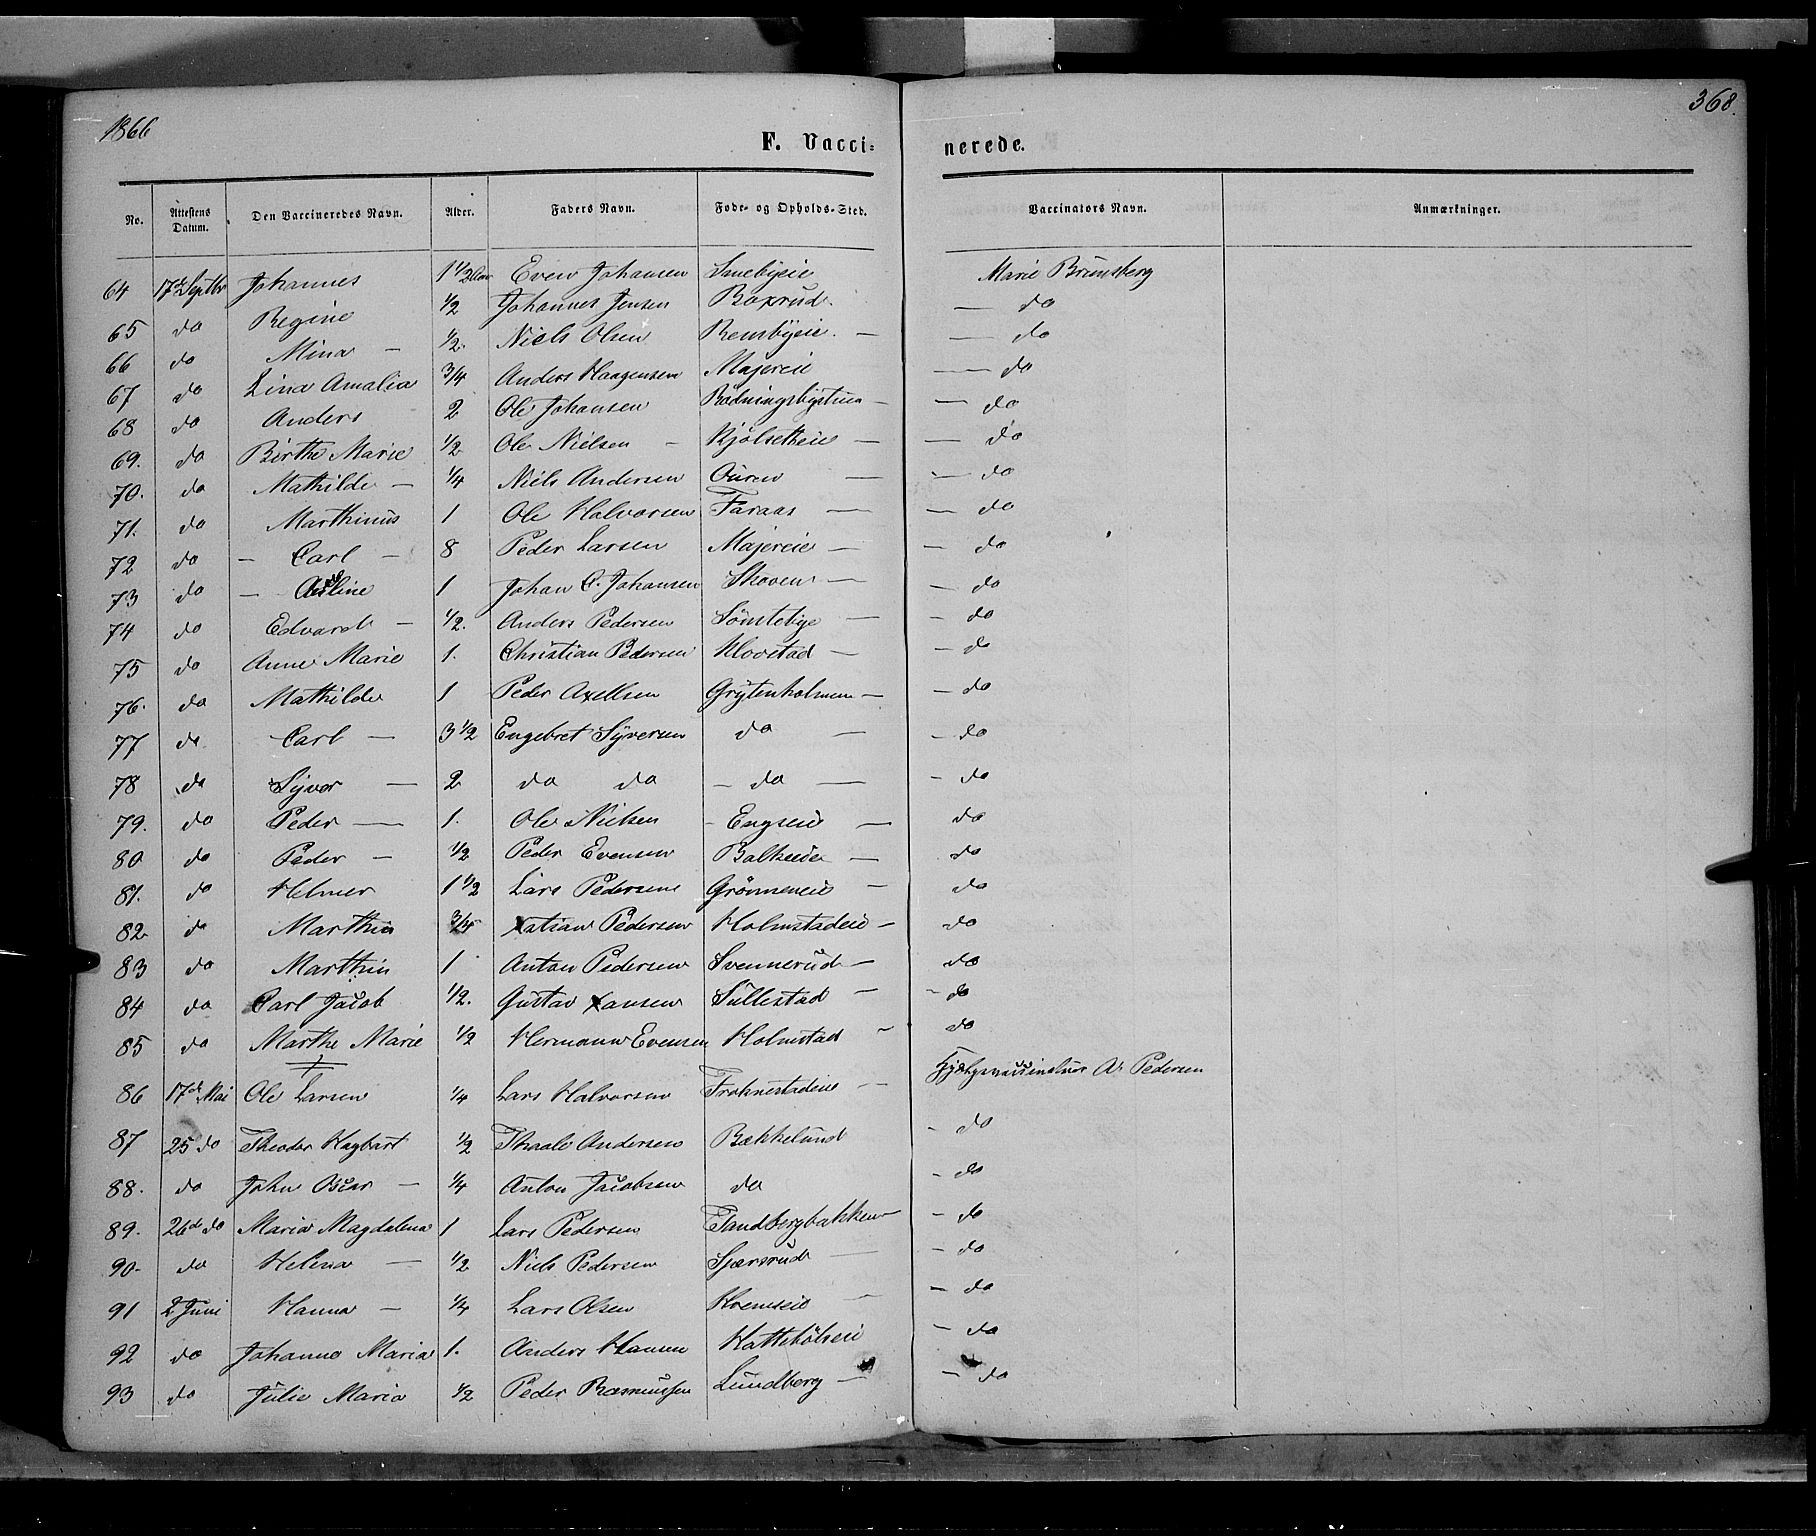 1866
368.
F. Vacci=
nerede.
No. Attestens Datum. Den Vaccineredes Navn. Alder. Faders Navn. Føde- og Opholds-Sted. Vaccinators Navn. Anmærkninger.
64 17de Septbr Johannes 1 1/2 Even Johansen Smebyeie Marie Brunsberg
65 do Regine 1/2 Johannes Jensen Boxrud. — do
66 do Mina — 1/2. Niels Olsen Rensbyeie. — — do
67 do Lina Amalia 3/4 Anders Haagensen Majereie — do
68 do Anders 2 Ole Johansen Rødningsbystuen — — do
69. do Birthe Marie 1/2 Ole Nielsen — Kjølsetheie — — do
70. do Mathilde — 1/4 Niels Andersen Ouren — — do
71. do Marthinus 1 Ole Halvorsen Faraas — — do
72 do — Carl — 8 Peder Larsen Majereie — — do
73 do — 1 Johan C. Johansen Skoven — — do
74 do Edvard — 1/2. Anders Pedersen Sømstebye — — do
75 do Anne Marie 1. Christian Pedersen Klovstad — — do
76. do Mathilde 1 Peder Axelsen Grytenholmen — — do
77 do Carl — 3 1/2 Engebret Syversen do — — do
78 do Syver — 2 do do — do — — do
79. do Peder — 1. Ole Nielsen — Engseie — do
80 do Peder — 1/2 Peder Evensen Balkeeie — do
81. do Helmer 1 1/2 Lars Pedersen Grønneneie — do
82 do Marthin 3/4 Xatian Pedersen Holmstadeie — do
83 do Marthin 1 Anton Pedersen Svennerud — do
84 do Carl Jacob 1/2. Gustav Xansen Sullestad — — do
85 do Marthe Marie 1/2 Hermann Evensen Holmstad — do
86 17de Mai Ole Larsen 1/4 Lars Halvorsen Froknestadeie — A. Pedersen
87 25 do Theodor Hagbart 1/2 Thaale Andersen Bækkelund — do
88. do John Oscar — 1/4 Anton Jacobsen do — do
89. 26d do Maria Magdalena 1 Lars Pedersen Sandbergbakken — — do
90. do Helena — 1/2 Niels Pedersen Sjærsrud — — do
91 2 Juni Hanna — 1/4 Lars Olsen Kvemseie — — do
92 do Johanne Maria 1. Anders Hansen Kattehølseie — do
93 do Julie Maria 1/2 Peder Rasmussen Lundberg — — do